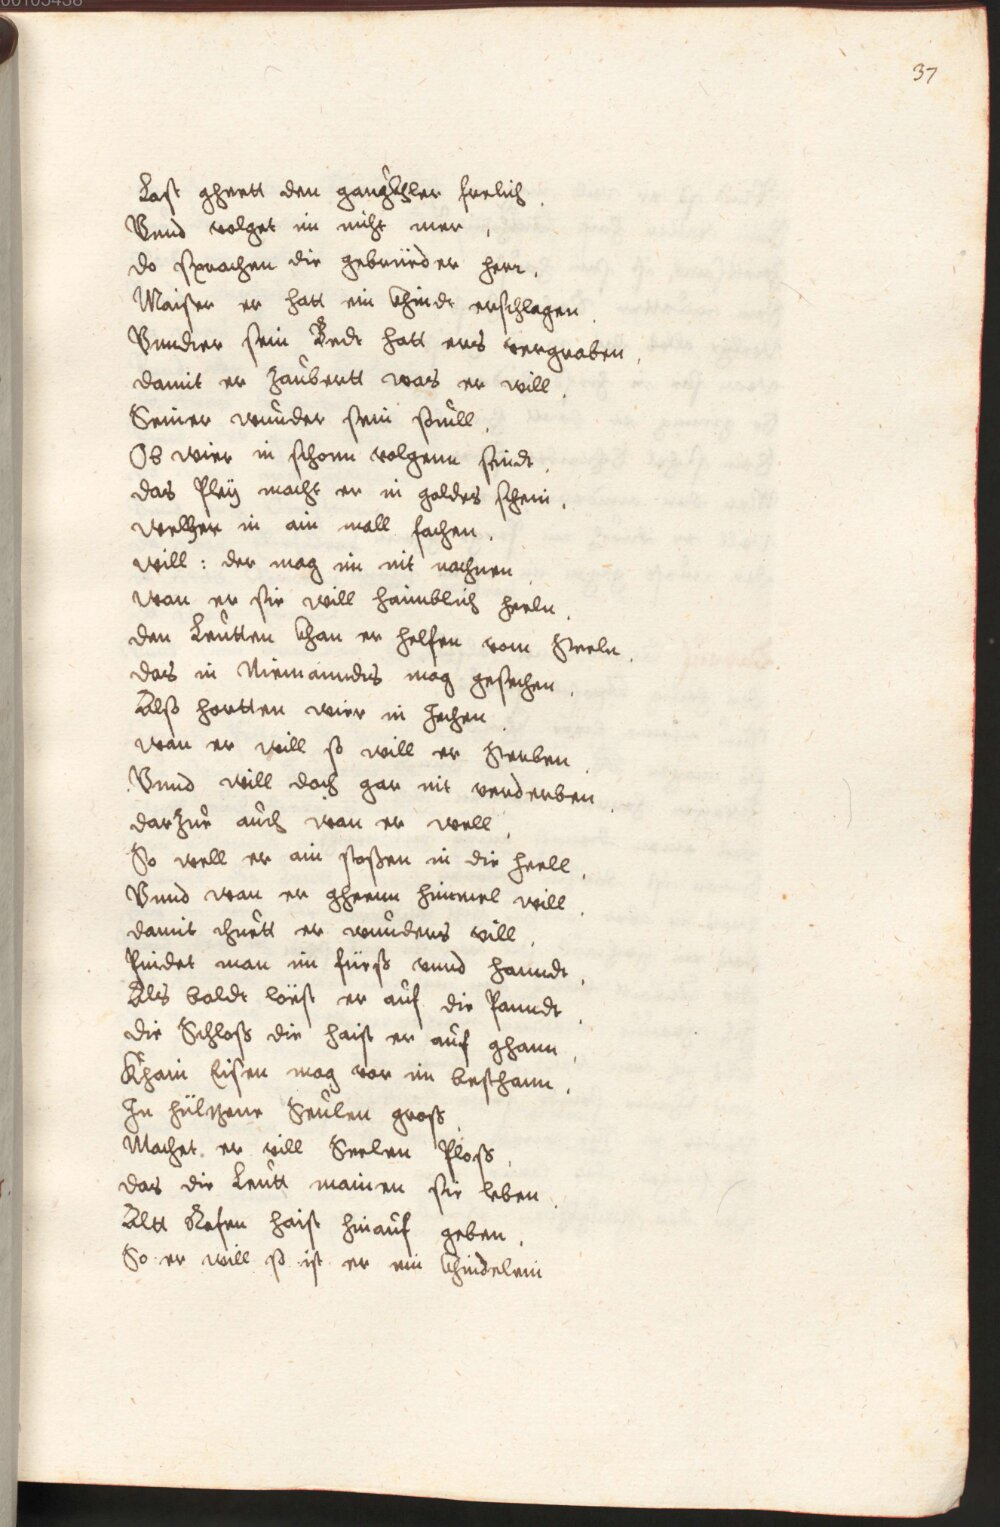 00105458
37
Last gheett den gaugkhler freelich.
Vnnd volget im nicht mer,
do sprachen die gebrüeder herr,
Maister er hatt ein khindt erschlagen.
Vnndter sein Bedt hatt ers vergraben,
damit er Zaubertt was er will,
Seiner wunder sein souill,
Ob wier in schonn volgenn sindt,
das Pley macht er in goldes schein,
welcher in ain mall fachen,
will: der mag im nit nachnen
wan er sie will haimblich heeln,
den Leutten khan er helfen vom Steeln.
das in Niemanndts mag gesechen,
Alß hortten wier in Jechen
wan er will so will er Sterben,
Vnnd will doch gar nit verderben,
darZue auch wan er well,
So well er ain stossen in die heell,
Vnnd wan er gheenn himmel will,
damit thuett er wunders vill,
Pindet man im füeß vnnd hanndt,
Als baldt löest er auf die Panndt,
die Schloß die haist er auf ghann,
Khain Eisen mag vor im besthann,
In hültzene Seulen groß,
Machet er vill Seelen Ploß,
das die Leutt mainen sie leben,
Altt Rosen haist hinauf geben,
So er will so ist er ein khindelein